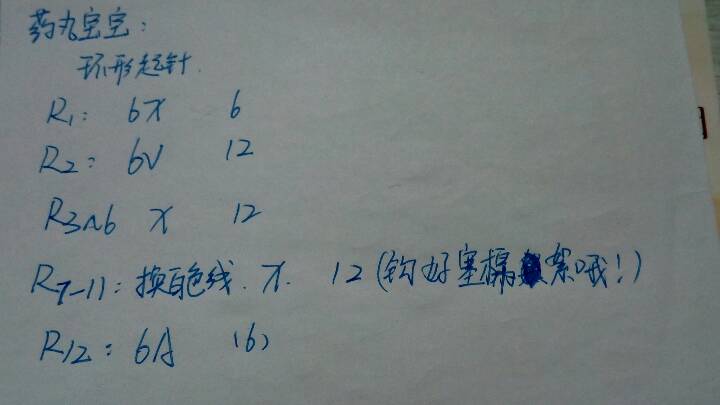 药丸空空:
环形起针.
R1: 6X 6
R2: 6V 12
R3~6 X 12
R7-11: 换白色线. X. 12 (钩好塞棉絮哦!)
R12: 6A (6)